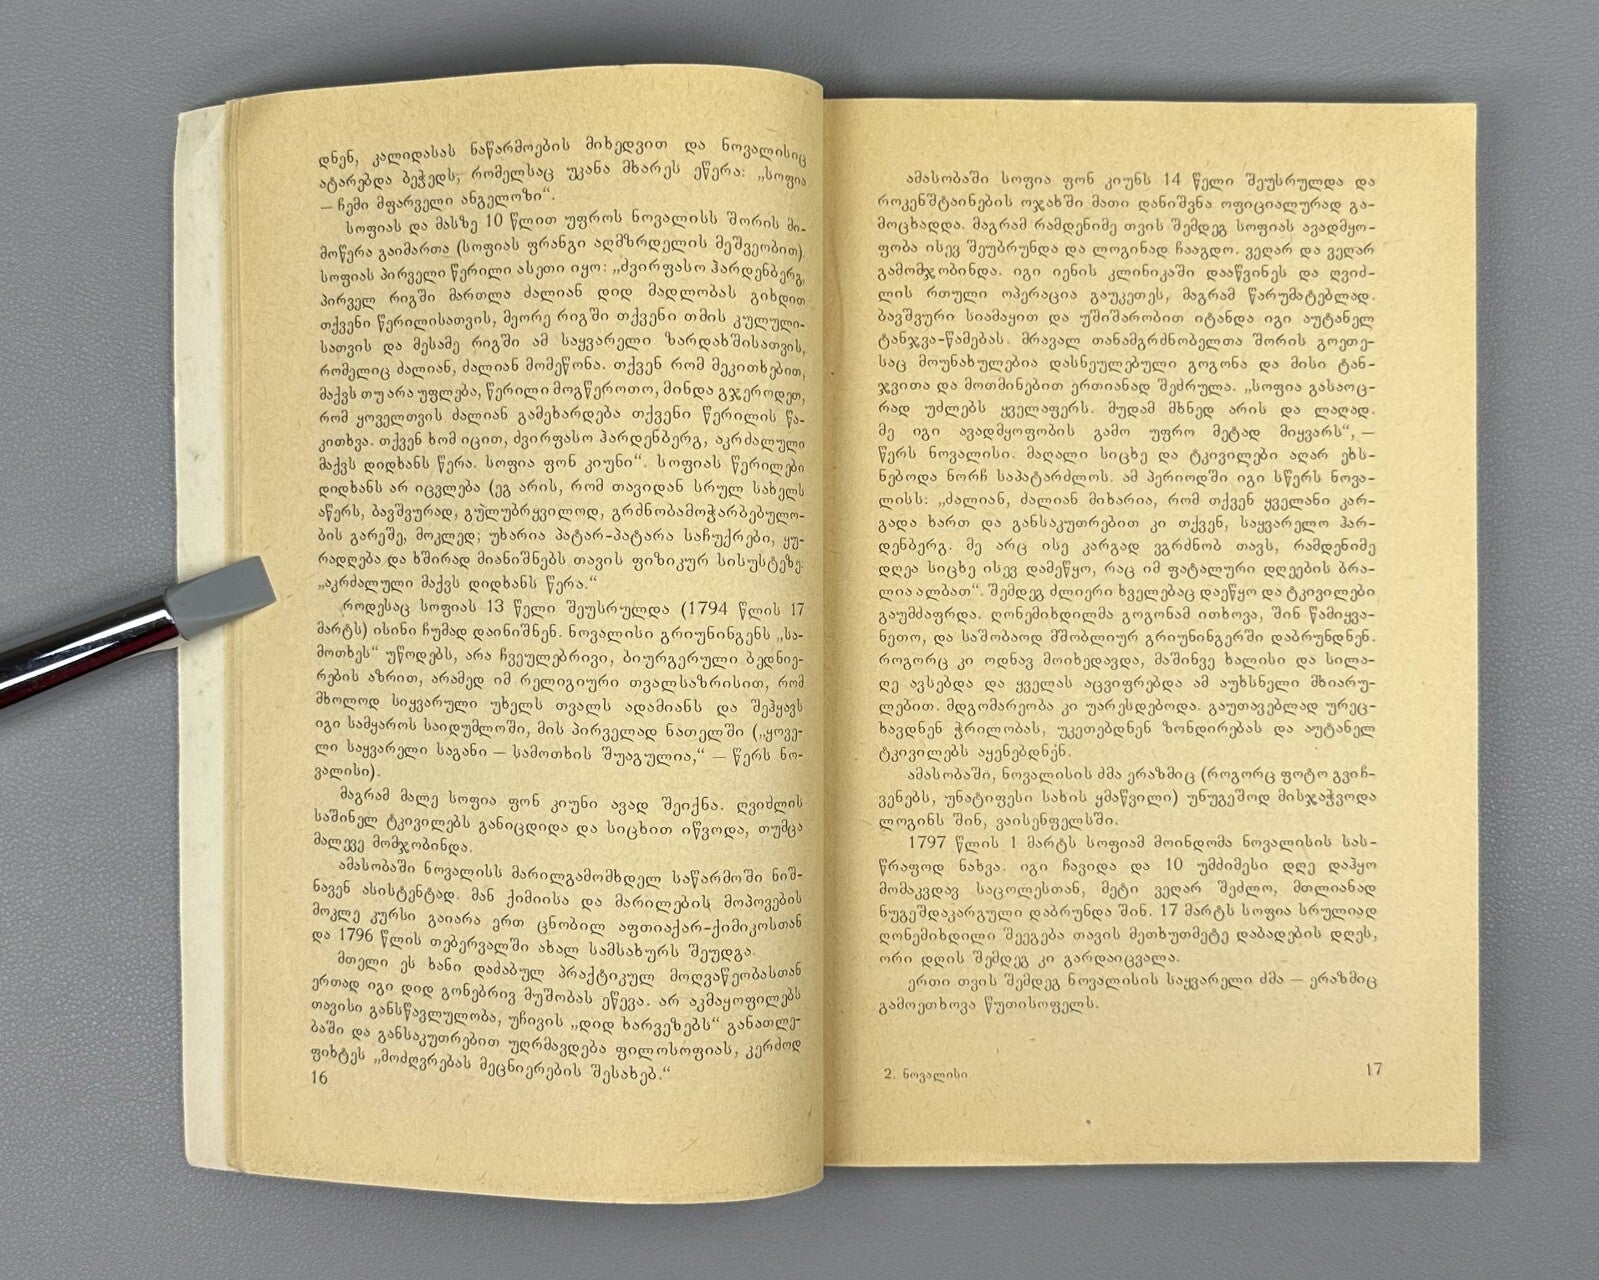 დნენ, კალიდასას ნაწარმოების მიხედვით და ნოვალისიც
ატარებდა ბეჭედს, რომელსაც უკანა მხარეს ეწერა: „სოფია
— ჩემი მფარველი ანგელოზი“.
სოფიას და მასზე 10 წლით უფროს ნოვალისს შორის მი-
მოწერა გაიმართა (სოფიას ფრანგი აღმზრდელის მეშვეობით).
სოფიას პირველი წერილი ასეთი იყო: „ძვირფასო ჰარდენბერგ,
პირველ რიგში მართლა ძალიან დიდ მადლობას გიხდით
თქვენი წერილისათვის, მეორე რიგში თქვენი თმის კულული-
სათვის და მესამე რიგში ამ საყვარელი ზარდახშისათვის,
რომელიც ძალიან, ძალიან მომეწონა. თქვენ რომ მეკითხებით,
მაქვს თუ არა უფლება, წერილი მოგწეროთო, მინდა გჯეროდეთ,
რომ ყოველთვის ძალიან გამეხარდება თქვენი წერილის წა-
კითხვა. თქვენ ხომ იცით, ძვირფასო ჰარდენბერგ, აკრძალული
მაქვს დიდხანს წერა. სოფია ფონ კიუნი“. სოფიას წერილები
დიდხანს არ იცვლება (ეგ არის, რომ თავიდან სრულ სახელს
აწერს, ბავშვურად, გულუბრყვილოდ, გრძნობამოჭარბებულო-
ბის გარეშე, მოკლედ; უხარია პატარ-პატარა საჩუქრები, ყუ-
რადღება და ხშირად მიანიშნებს თავის ფიზიკურ სისუსტეზე:
„აკრძალული მაქვს დიდხანს წერა.“
როდესაც სოფიას 13 წელი შეუსრულდა (1794 წლის 17
მარტს) ისინი ჩუმად დაინიშნენ. ნოვალისი გრიუნინგენს „სა-
მოთხეს“ უწოდებს, არა ჩვეულებრივი, ბიურგერული ბედნიე-
რების აზრით, არამედ იმ რელიგიური თვალსაზრისით, რომ
მხოლოდ სიყვარული უხელს თვალს ადამიანს და შეჰყავს
იგი სამყაროს საიდუმლოში, მის პირველად ნათელში („ყოვე-
ლი საყვარელი საგანი — სამოთხის შუაგულია,“ — წერს ნო-
ვალისი).
მაგრამ მალე სოფია ფონ კიუნი ავად შეიქნა. ღვიძლის
საშინელ ტკივილებს განიცდიდა და სიცხით იწვოდა, თუმცა
მალევე მომჯობინდა.
ამასობაში ნოვალისს მარილგამომხდელ საწარმოში ნიშ-
ნავენ ასისტენტად. მან ქიმიისა და მარილების მოპოვების
მოკლე კურსი გაიარა ერთ ცნობილ აფთიაქარ-ქიმიკოსთან
და 1796 წლის თებერვალში ახალ სამსახურს შეუდგა.
მთელი ეს ხანი დაძაბულ პრაქტიკულ მოღვაწეობასთან
ერთად იგი დიდ გონებრივ მუშობას ეწევა. არ აკმაყოფილებს
თავისი განსწავლულობა, უჩივის „დიდ ხარვეზებს“ განათლე-
ბაში და განსაკუთრებით უღრმავდება ფილოსოფიას, კერძოდ
ფიხტეს „მოძღვრებას მეცნიერების შესახებ.“
16
ამასობაში სოფია ფონ კიუნს 14 წელი შეუსრულდა და
როკენშტაინების ოჯახში მათი დანიშვნა ოფიციალურად გა-
მოცხადდა. მაგრამ რამდენიმე თვის შემდეგ სოფიას ავადმყო-
ფობა ისევ შეუბრუნდა და ლოგინად ჩააგდო. ვეღარ და ვეღარ
გამომჯობინდა. იგი იენის კლინიკაში დააწვინეს და ღვიძ-
ლის რთული ოპერაცია გაუკეთეს, მაგრამ წარუმატებლად.
ბავშვური სიამაყით და უშიშარობით იტანდა იგი აუტანელ
ტანჯვა-წამებას. მრავალ თანამგრძნობელთა შორის გოეთე-
საც მოუნახულებია დასნეულებული გოგონა და მისი ტან-
ჯვითა და მოთმინებით ერთიანად შეძრულა. „სოფია გასაოც-
რად უძლებს ყველაფერს. მუდამ მხნედ არის და ლაღად.
მე იგი ავადმყოფობის გამო უფრო მეტად მიყვარს“, —
წერს ნოვალისი. მაღალი სიცხე და ტკივილები აღარ ეხს-
ნებოდა ნორჩ საპატარძლოს. ამ პერიოდში იგი სწერს ნოვა-
ლისს: „ძალიან, ძალიან მიხარია, რომ თქვენ ყველანი კარ-
გადა ხართ და განსაკუთრებით კი თქვენ, საყვარელო ჰარ-
დენბერგ. მე არც ისე კარგად ვგრძნობ თავს, რამდენიმე
დღეა სიცხე ისევ დამეწყო, რაც იმ ფატალური დღეების ბრა-
ლია ალბათ“. შემდეგ ძლიერი ხველებაც დაეწყო და ტკივილები
გაუმძაფრდა. ღონემიხდილმა გოგონამ ითხოვა, შინ წამიყვა-
ნეთო, და საშობაოდ მშობლიურ გრიუნინგერში დაბრუნდნენ.
როგორც კი ოდნავ მოიხედავდა, მაშინვე ხალისი და სილა-
ღე ავსებდა და ყველას აცვიფრებდა ამ აუხსნელი მხიარუ-
ლებით. მდგომარეობა კი უარესდებოდა. გაუთავებლად ურეც-
ხავდნენ ჭრილობას, უკეთებდნენ ზონდირებას და აუტანელ
ტკივილებს აყენებდნენ.
ამასობაში, ნოვალისის ძმა ერაზმიც (როგორც ფოტო გვიჩ-
ვენებს, უნატიფესი სახის ყმაწვილი) უნუგეშოდ მისჯაჭვოდა
ლოგინს შინ, ვაისენფელსში.
1797 წლის 1 მარტს სოფიამ მოინდომა ნოვალისის სას-
წრაფოდ ნახვა. იგი ჩავიდა და 10 უმძიმესი დღე დაჰყო
მომაკვდავ საცოლესთან, მეტი ვეღარ შეძლო, მთლიანად
ნუგეშდაკარგული დაბრუნდა შინ. 17 მარტს სოფია სრულიად
ღონემიხდილი შეეგება თავის მეთხუთმეტე დაბადების დღეს,
ორი დღის შემდეგ კი გარდაიცვალა.
ერთი თვის შემდეგ ნოვალისის საყვარელი ძმა — ერაზმიც
გამოეთხოვა წუთისოფელს.
2. ნოვალისი
17